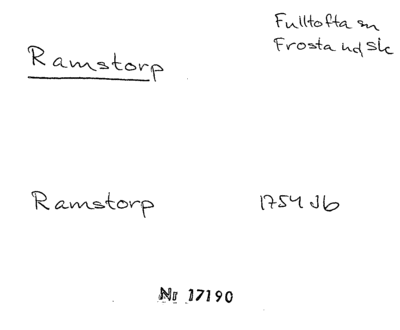 Fulltofta sn
Frosta hd Sk
Ramstorp
Ramstorp 1754 Jb
Nr 17190